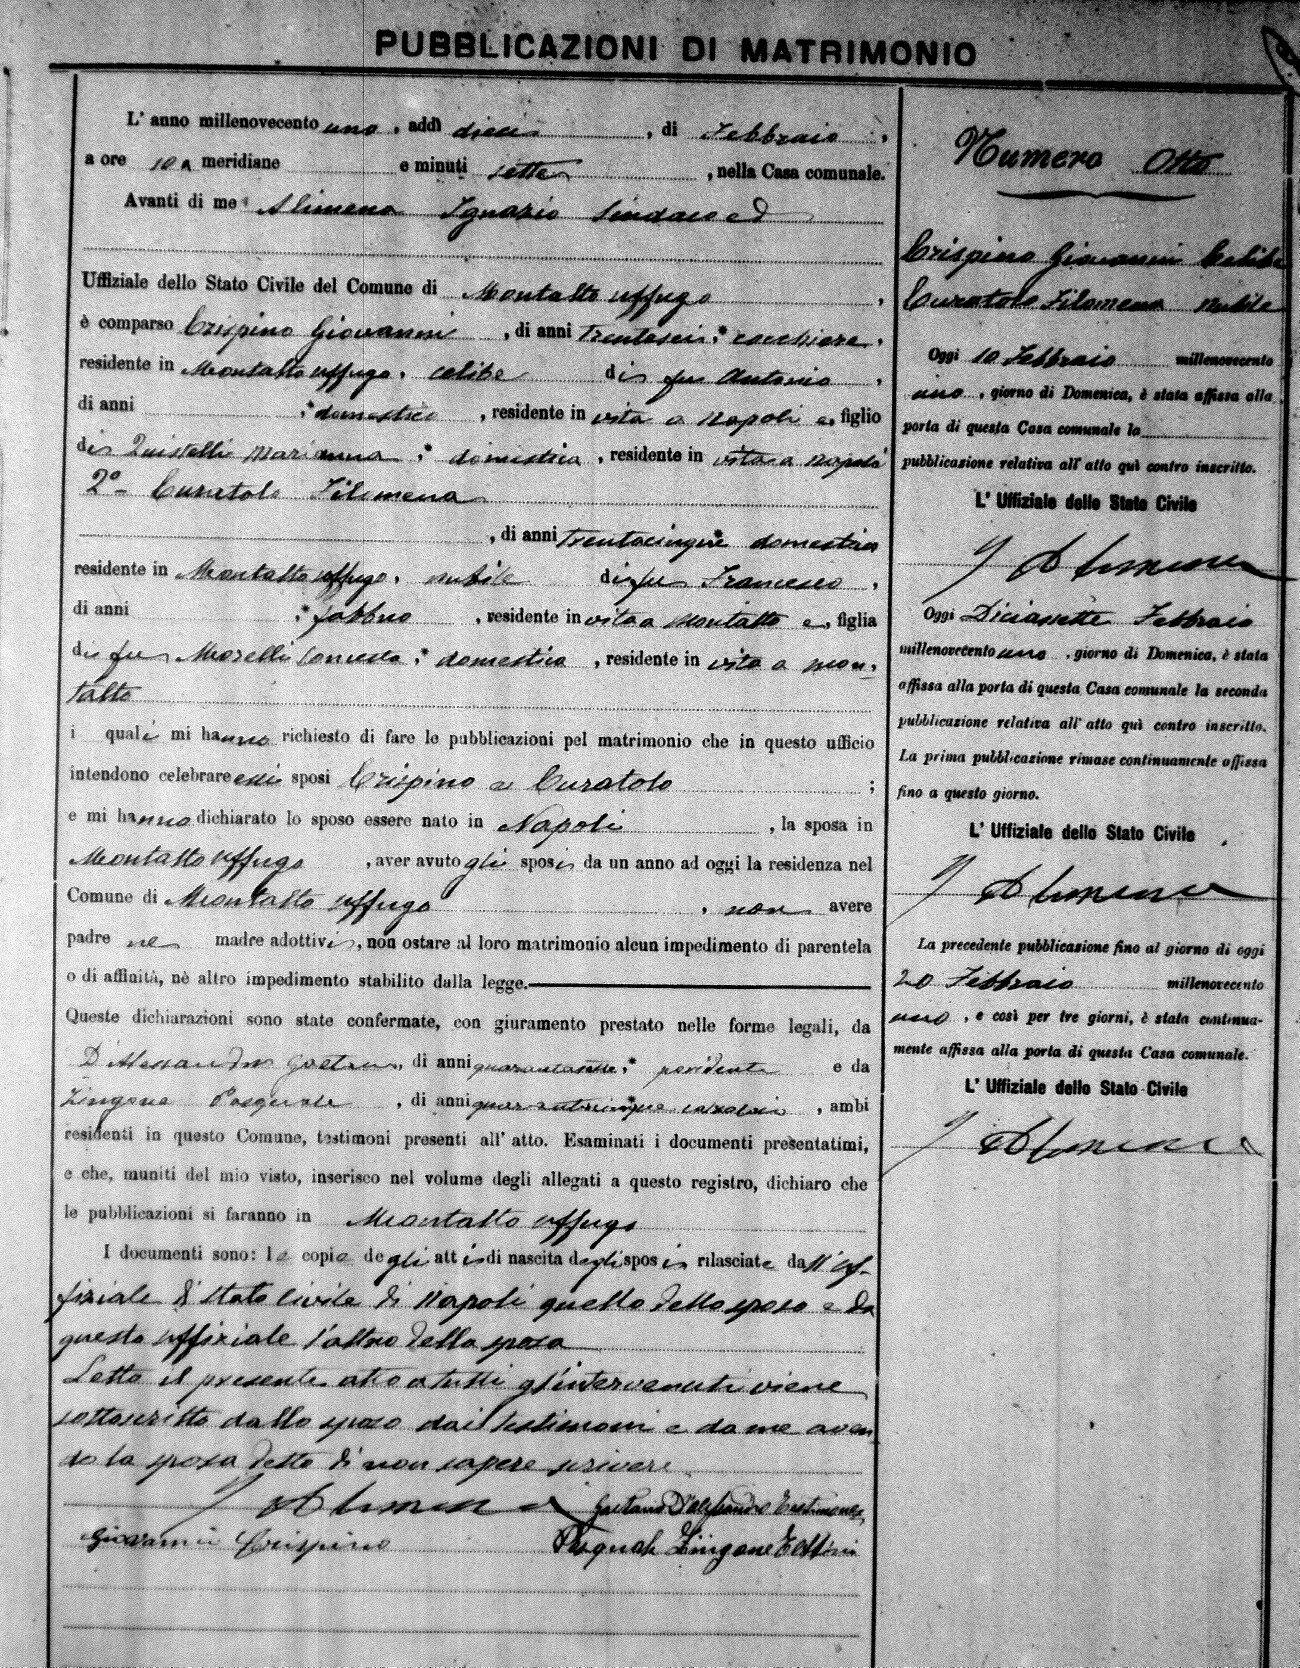 PUBBLICAZIONI DI MATRIMONIO
L' anno millenovecento uno, addì dieci, di Febbraio,
a ore 10 a meridiane e minuti sette, nella Casa comunale.
Avanti di me Alimena Ignazio Sindaco ed
Uffiziale dello Stato Civile del Comune di Montalto uffugo,
è comparso Crispino Giovanni, di anni trentasei, * cocchiere,
residente in Montalto uffugo, celibe di fu Antonio,
di anni , * domestico, residente in vita a Napoli e, figlio
di Quistelli Marianna, * domestica, residente in vita a Napoli
2° Curatolo Filomena
, di anni trentacinque * domestica
residente in Montalto uffugo, nubile di fu Francesco,
di anni , * fabbro, residente in vita a Montalto e, figlia
di fu Morelli, * domestica, residente in vita a Mon-
talto
i quali mi hanno richiesto di fare le pubblicazioni pel matrimonio che in questo ufficio
intendono celebrare essi sposi Crispino e Curatolo ;
e mi hanno dichiarato lo sposo essere nato in Napoli, la sposa in
Montalto uffugo, aver avuto gli sposi da un anno ad oggi la residenza nel
Comune di Montalto uffugo, non avere
padre ne madre adottivi, non ostare al loro matrimonio alcun impedimento di parentela
o di affinità, nè altro impedimento stabilito dalla legge.
Queste dichiarazioni sono state confermate, con giuramento prestato nelle forme legali, da
D'Alessandro Gaetano, di anni quarantasette, * possidente e da
Zingone Pasquale, di anni quarantacinque * calzolaio, ambi
residenti in questo Comune, testimoni presenti all' atto. Esaminati i documenti presentatimi,
e che, muniti del mio visto, inserisco nel volume degli allegati a questo registro, dichiaro che
le pubblicazioni si faranno in Montalto uffugo
I documenti sono: le copie degli atti di nascita degli sposi rilasciate dall'uf-
fiziale di stato civile di Napoli quello dello sposo e da
questo uffiziale l'altro della sposa
Letto il presente atto a tutti gl'intervenuti viene
sottoscritto dallo sposo dai testimoni e da me aven
do la sposa detto di non sapere scrivere
I Alimena Gaetano D'Alessandro Testimone
Giovanni Crispino Pasquale Zingone Testimo
Numero Otto
Crispino Giovanni Celibe
Curatolo Filomena nubile
Oggi 10 Febbraio millenovecento
uno, giorno di Domenica, è stata affissa alla
porta di questa Casa comunale la
pubblicazione relativa all' atto quì contro inscritto.
L' Uffiziale dello Stato Civile
I Alimena
Oggi Diciasette Febbraio
millenovecento uno, giorno di Domenica, è stata
affissa alla porta di questa Casa comunale la seconda
pubblicazione relativa all' atto quì contro inscritto.
La prima pubblicazione rimase continuamente affissa
fino a questo giorno.
L' Uffiziale dello Stato Civile
I Alimena
La precedente pubblicazione fino al giorno di oggi
20 Febbraio millenovecento
uno, e così per tre giorni, è stata continua-
mente affissa alla porta di questa Casa comunale.
L' Uffiziale dello Stato Civile
I Alimena